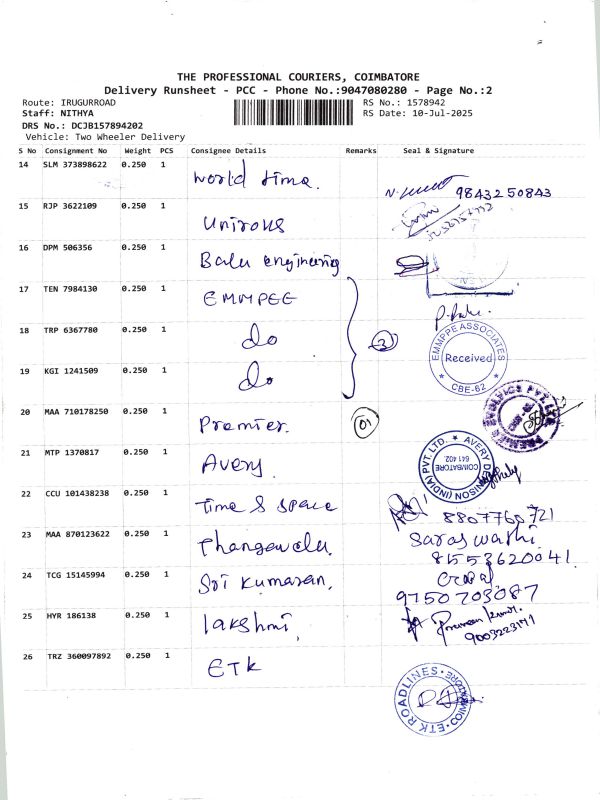 THE PROFESSIONAL COURIERS, COIMBATORE
Delivery Runsheet - PCC - Phone No.:9047080280 - Page No.:2
Route: IRUGURROAD
RS No.: 1578942
Staff: NITHYA
RS Date: 10-Jul-2025
DRS No.: DCJB157894202
Vehicle: Two Wheeler Delivery
S No Consignment No Weight PCS Consignee Details Remarks Seal & Signature
14 SLM 373898622 0.250 1 World time.
9843250843
15 RJP 3622109 0.250 1
16 DPM 506356 0.250 1 Balu engineering
17 TEN 7984130 0.250 1 EMMPEE
18 TRP 6367780 0.250 1 do 3
EMMPPE ASSOCIATES
Received
CBE-62
19 KGI 1241509 0.250 1 do
20 MAA 710178250 0.250 1 Premier. 01
21 MTP 1370817 0.250 1 Avery
AVERY DENNISON (INDIA) PVT. LTD.
COIMBATORE
641 402
22 CCU 101438238 0.250 1 Time & space
8807760721
23 MAA 870123622 0.250 1 Thangavelu.
Saraswathi
24 TCG 15145994 0.250 1 Sri Kumaran.
9750703087
25 HYR 186138 0.250 1 lakshmi
9003223171
26 TRZ 360097892 0.250 1 ETK
ETK ROADLINES
COIMBATORE